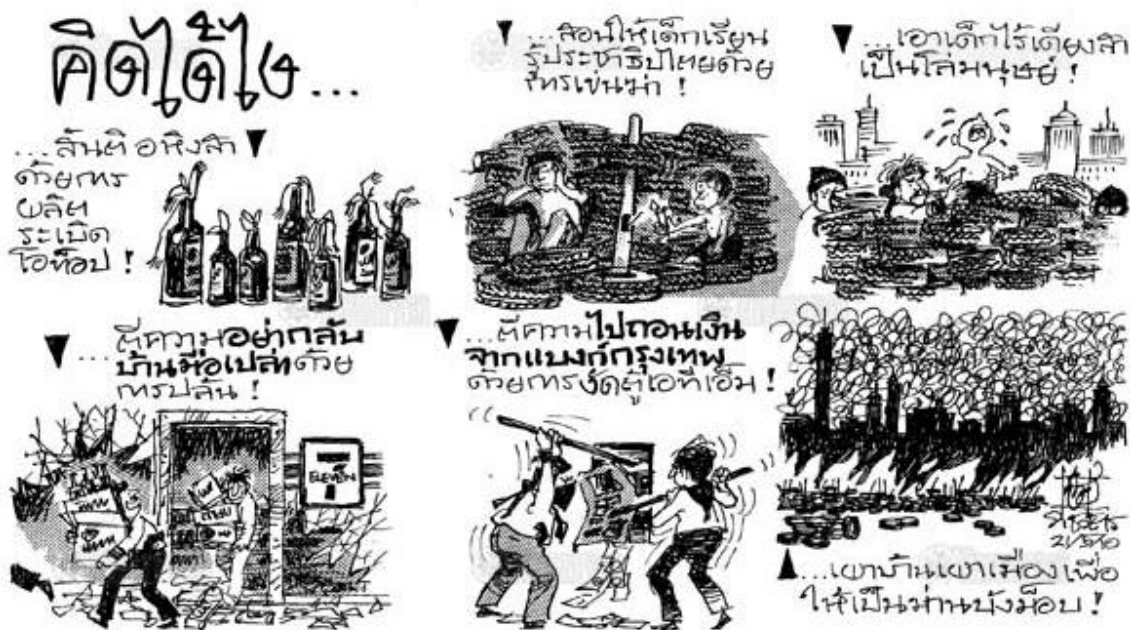 คิดได้ไง...
...สันติ อหิงสา
ด้วยการ
ผลิต
ระเบิด
โอท็อป !
...สอนให้เด็กเรียน
รู้ประชาธิปไตยด้วย
การเข่นฆ่า !
...เอาเด็กไร้เดียงสา
เป็นโล่มนุษย์ !
...ตีความอย่ากลับ
บ้านมือเปล่าด้วย
การปล้น !
ELEVEN
...ตีความไปถอนเงิน
จากแบงก์กรุงเทพ
ด้วยการงัดตู้เอทีเอ็ม !
...เผาบ้านเผาเมืองเพื่อ
ให้เป็นม่านบังม็อบ !